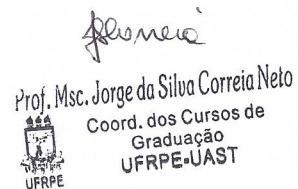 Prof. Msc. Jorge da Silva Correia Neto
Coord. dos Cursos de
Graduação
UFRPE-UAST
UFRPE